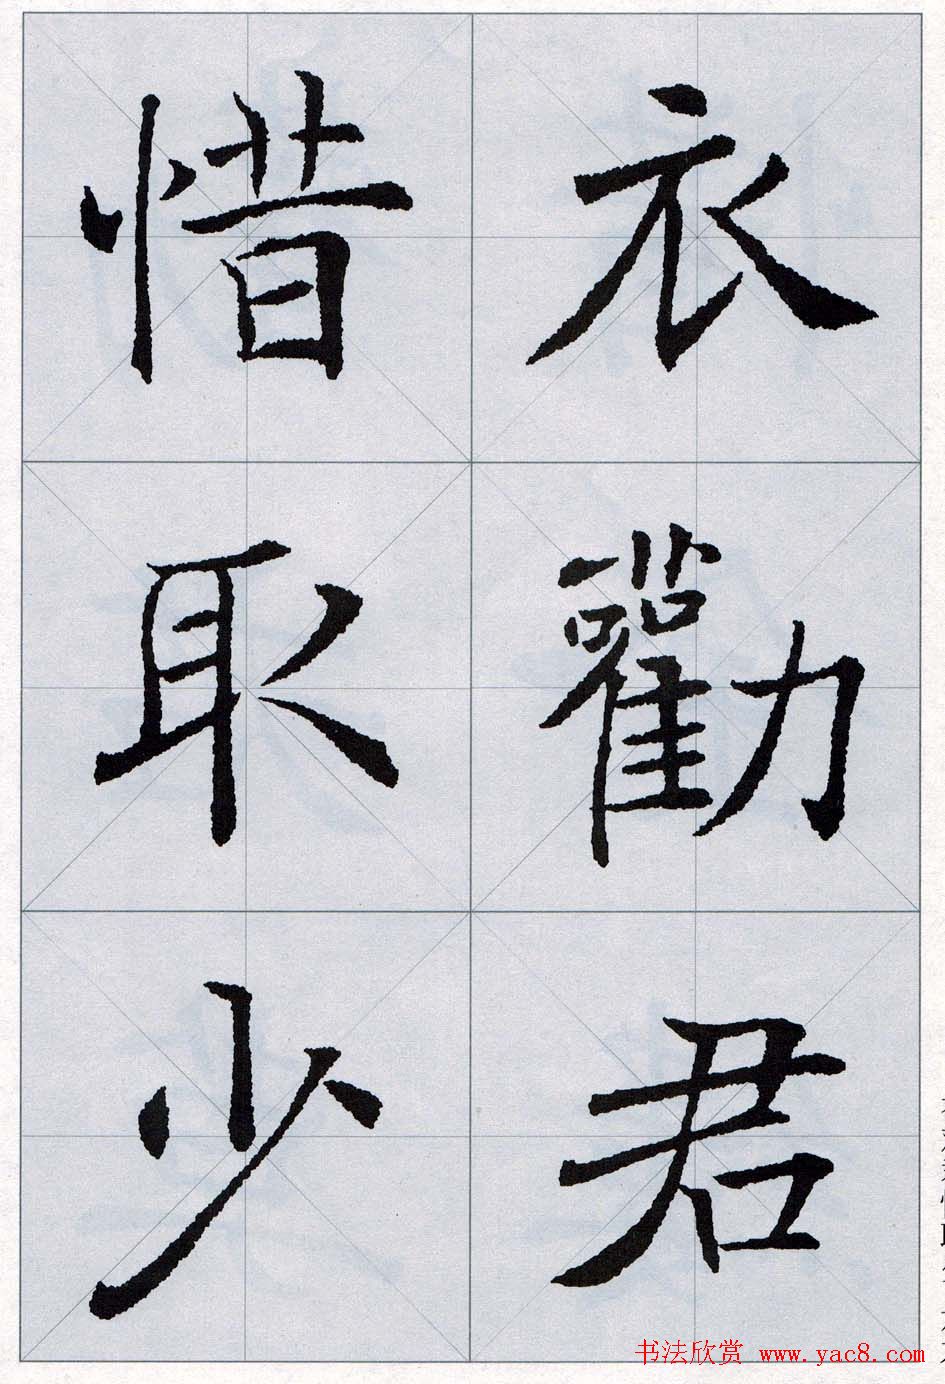 衣勸君
惜取少
书法欣赏 www.yac8.com